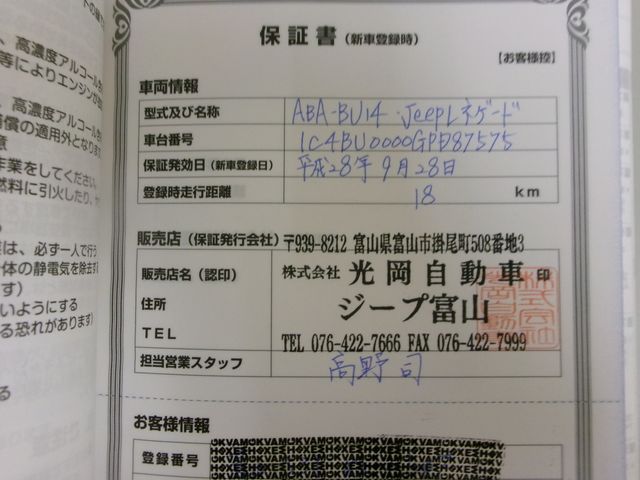 保証書（新車登録時）
【お客様控】
車両情報
型式及び名称 ABA-BU14 ・Jeepレネゲード
車台番号 1C4BU0000GPD87575
保証発効日（新車登録日） 平成28年9月28日
登録時走行距離 18 km
販売店（保証発行会社） 〒939-8212 富山県富山市掛尾町508番地3
販売店名（認印） 株式会社 光岡自動車 印
住所 ジープ富山
TEL TEL 076-422-7666 FAX 076-422-7999
担当営業スタッフ 高野 司
お客様情報
登録番号
、高濃度アルコール
等によりエンジンが
、高濃度アルコール
賠償の適用外となりま
意
作業をしてください。
燃料に引火したり、
は、必ず一人で行う
体の静電気を除去す
す）
いようにする
る恐れがあります）